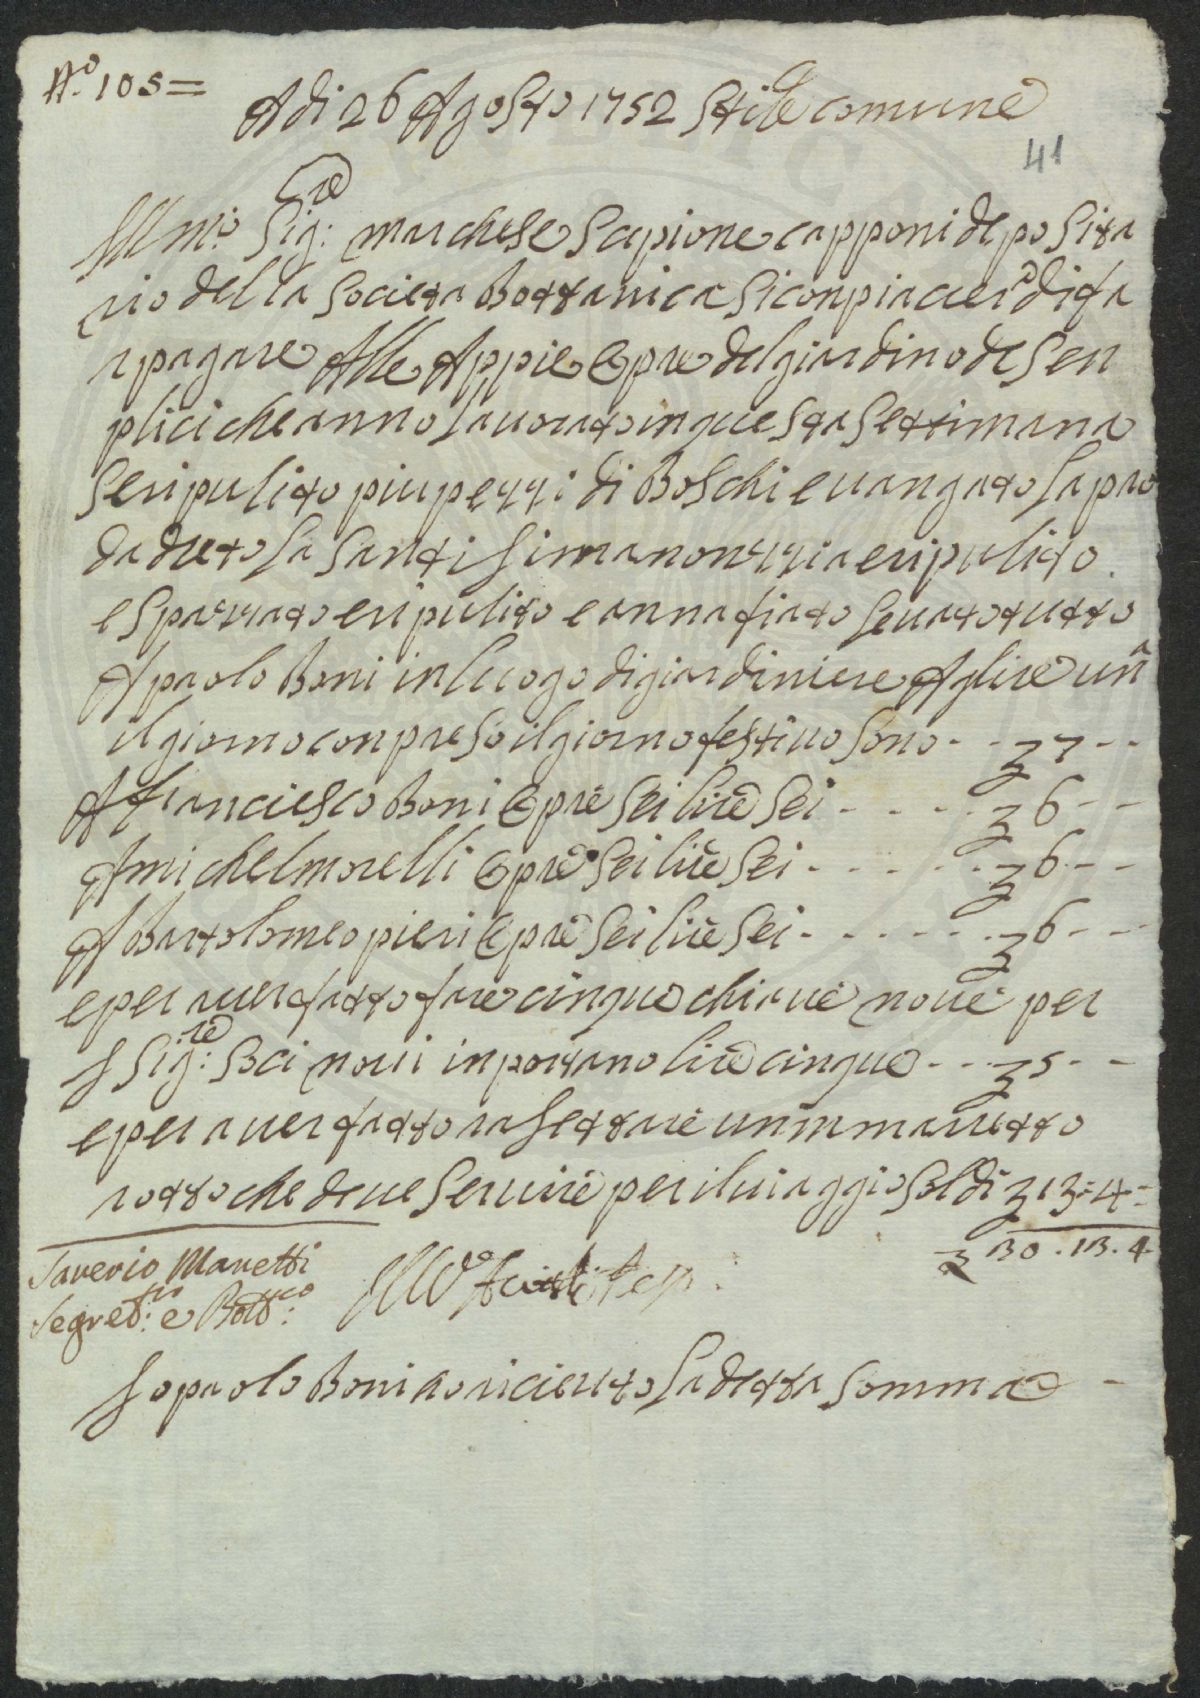 N.o 105=
Adi 26 Agosto 1752 Stile comune
41
Ill mo: Sig:re marchese Scipione capponi deposita
rio della Societa Bottanica Si conpiacierà di fa
r pagare Alle Appie Opre del giardino de Sen
plici che anno lauorato in questa Settimana
Se ripulito piu pezzi di Boschi e uangato la pro
da dreto la Santissima nonziia e ripulito
e spazzato e ripulito e annafiato leuato tutto
A paolo Boni in luogo di giardiniere A lire una
il giorno conpreso il giorno festiuo sono - - ʒ 7 - -
A franciesco Boni Opre Sei lire Sei - - - - ʒ 6 - -
A michel morelli Opre Sei lire Sei - - - - - ʒ 6 - -
A Bartolomeo pieri Opre Sei lire Sei - - - - - ʒ 6 - -
e per auer fatto fare cinque chiaue noue per
i Sig:re Soci noui inportano lire cinque - - - ʒ 5 - -
e per auer fatto rasettare un
rotto che deue Seruire per il uiaggio Soldi ʒ 13=4=
ʒ 30.13.4
Saverio Manetti
Segret:rio e Bott:co
Io paolo Boni ho riceuto la detta Somma -